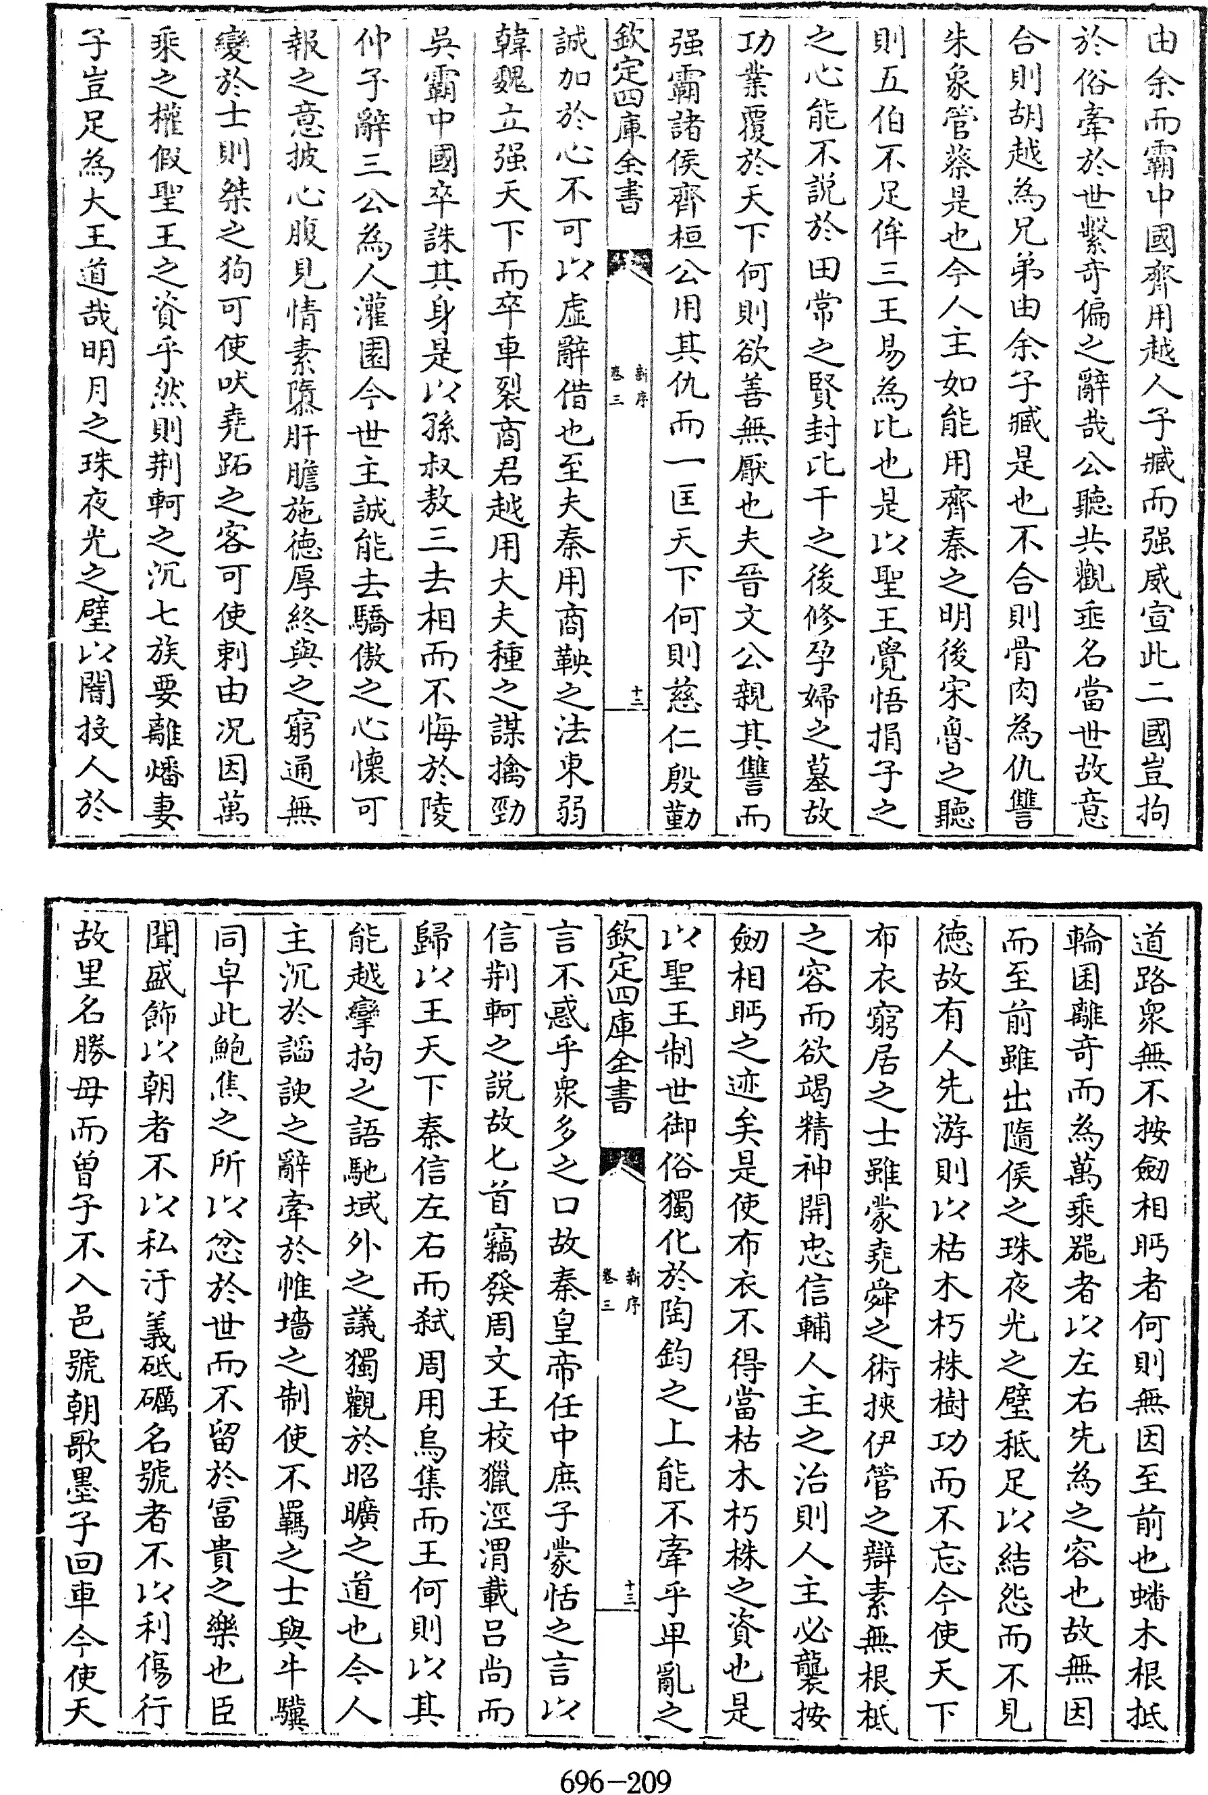 由余而霸中國齊用越人子臧而强威宣此二國豈拘
於俗牽於世繫奇偏之辭哉公聽共觀垂名當世故意
合則胡越為兄弟由余子臧是也不合則骨肉為仇讐
朱象管蔡是也今人主如能用齊秦之明後宋魯之聽
則五伯不足侔三王易為比也是以聖王覺悟捐子之
之心能不說於田常之賢封比干之後修孕婦之墓故
功業覆於天下何則欲善無厭也夫晉文公親其讐而
强霸諸侯齊桓公用其仇而一匡天下何則慈仁殷勤
欽定四庫全書
新序
卷三
十三
誠加於心不可以虛辭借也至夫秦用商鞅之法東弱
韓魏立强天下而卒車裂商君越用大夫種之謀擒勁
吳霸中國卒誅其身是以孫叔敖三去相而不悔於陵
仲子辭三公為人灌園今世主誠能去驕傲之心懷可
報之意披心腹見情素隳肝膽施徳厚終與之窮通無
變於士則桀之狗可使吠堯跖之客可使刺由况因萬
乘之權假聖王之資乎然則荆軻之沉七族要離燔妻
子豈足為大王道哉明月之珠夜光之璧以闇投人於
道路衆無不按劒相眄者何則無因至前也蟠木根抵
輪囷離奇而為萬乘器者以左右先為之容也故無因
而至前雖出隨侯之珠夜光之璧秪足以結怨而不見
徳故有人先游則以枯木朽株樹功而不忘今使天下
布衣窮居之士雖蒙堯舜之術挾伊管之辯素無根柢
之容而欲竭精神開忠信輔人主之治則人主必襲按
劒相眄之迹矣是使布衣不得當枯木朽株之資也是
以聖王制世御俗獨化於陶鈞之上能不牽乎卑亂之
欽定四庫全書
新序
卷三
十三
言不惑乎衆多之口故秦皇帝任中庶子蒙恬之言以
信荆軻之說故匕首竊發周文王校獵涇渭載吕尚而
歸以王天下秦信左右而弑周用烏集而王何則以其
能越攣拘之語馳域外之議獨觀於昭曠之道也今人
主沉於謟諛之辭牽於帷墻之制使不羈之士與牛驥
同皁此鮑焦之所以忿於世而不留於富貴之樂也臣
聞盛飾以朝者不以私汙義砥礪名號者不以利傷行
故里名勝母而曾子不入邑號朝歌墨子回車今使天
696-209